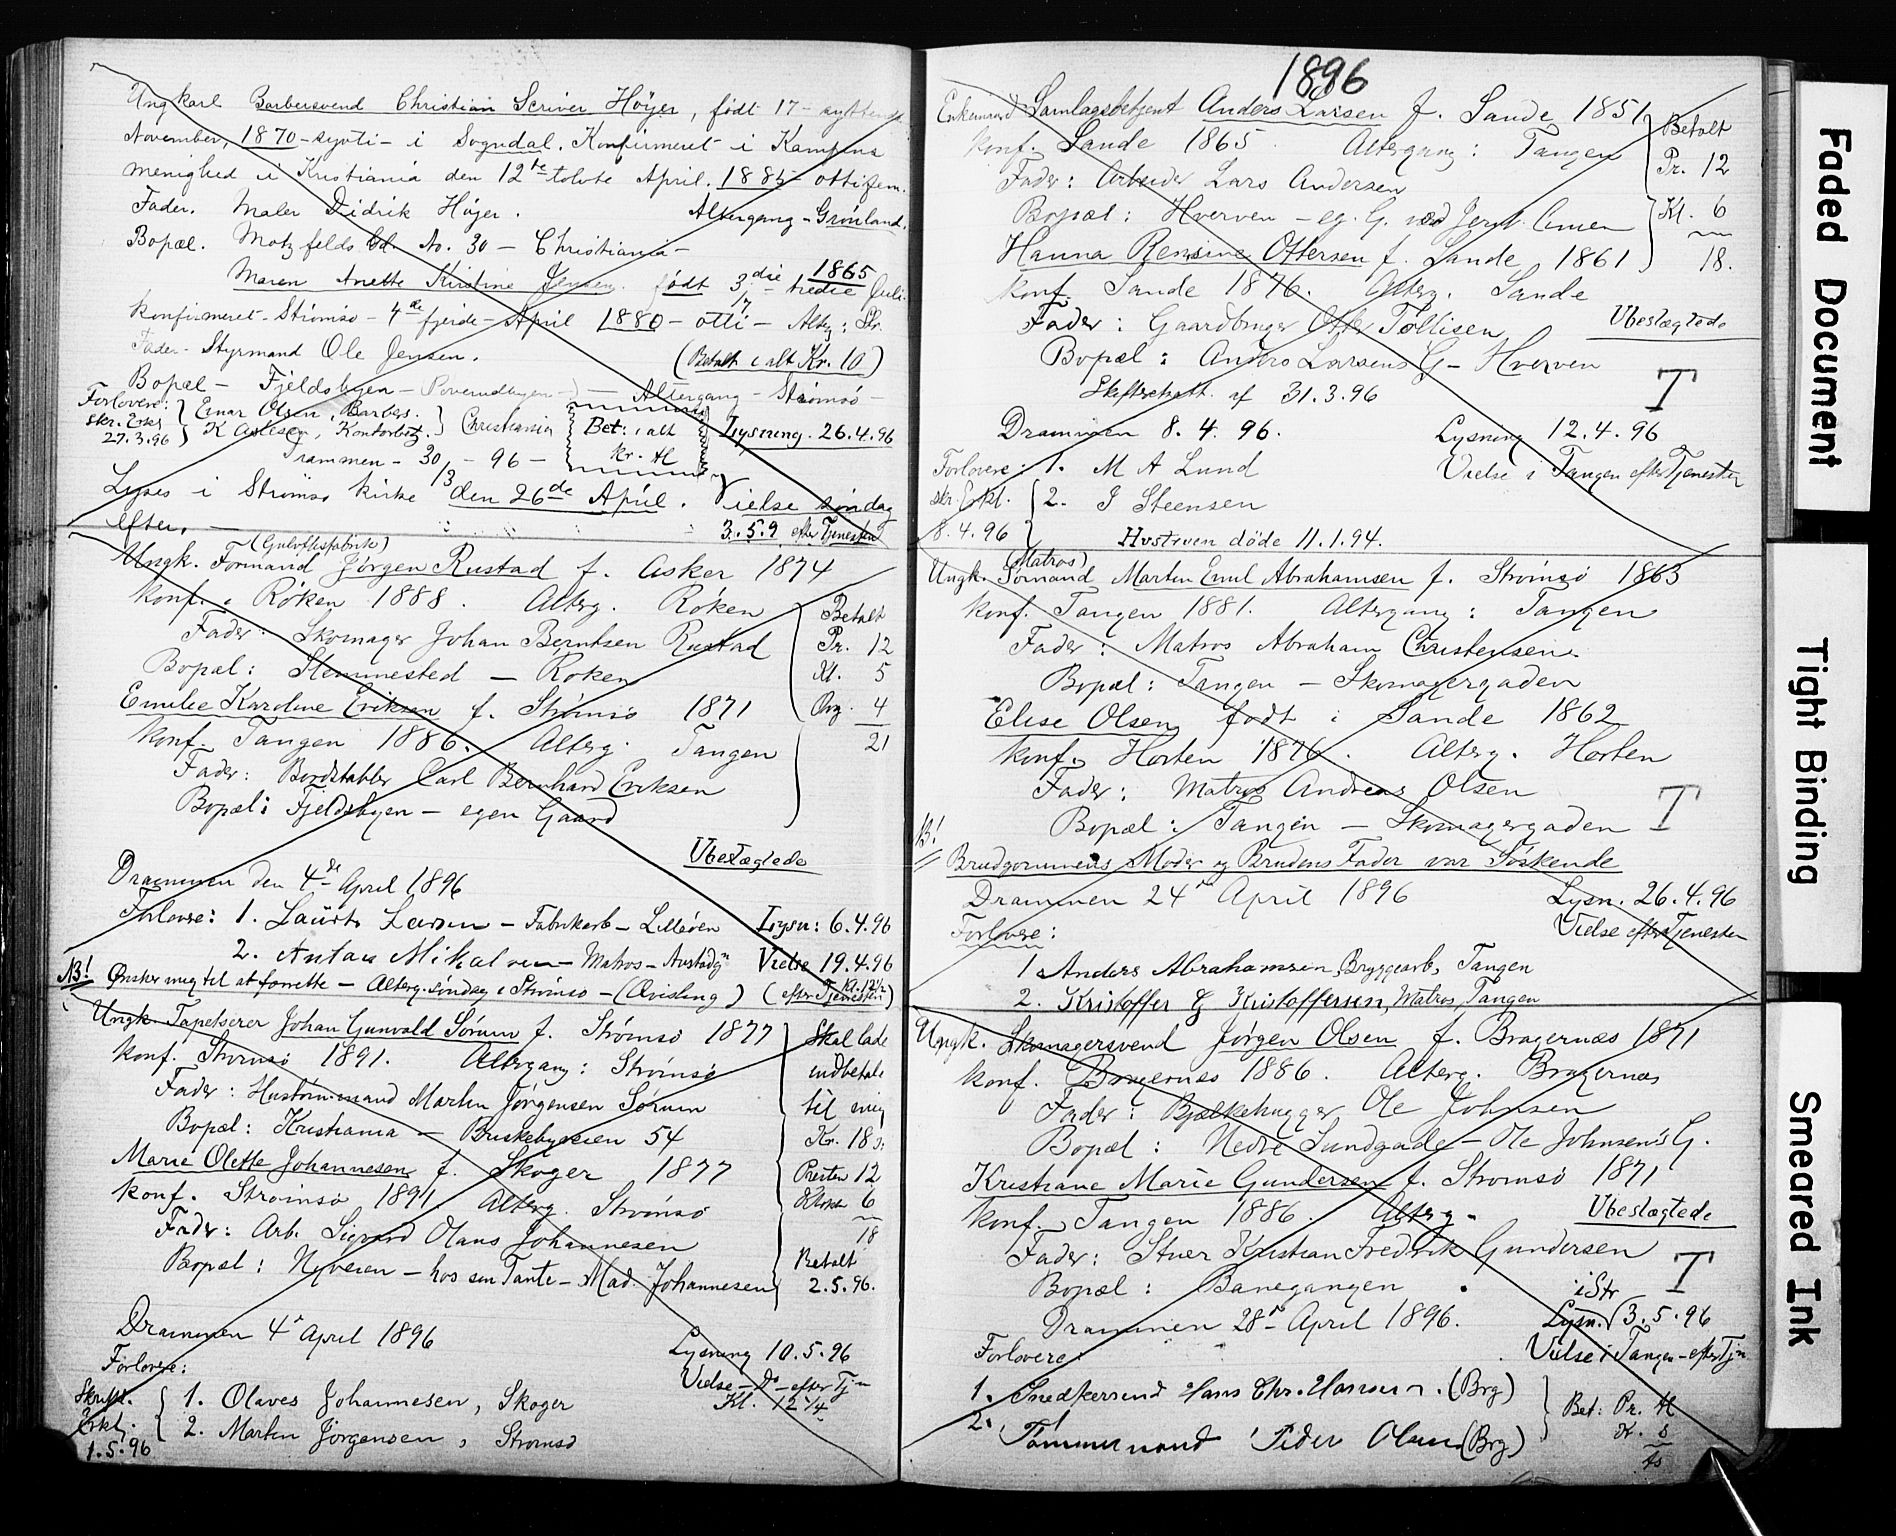 Ungkarl Barbersvend Christian Scriver Höyer, födt 17 - syttende
November, 1870 - sytti - i Sogndal. Konfirmeret i Kampens
menighed i Kristiania den 12te tolvte April. 1885 ottifem.
Fader. Maler Didrik Höyer. Altergang - Grönland.
Bopæl. Motzfelds Gd. No. 30 - Christiania -
Maren Anette Kirstine Jensen. födt 3die tredie Juli 1865
konfirmeret - Strömsö - 4de fjerde - April 1880 - otti - Alterg: Str.
Fader - Styrmand Ole Jensen. (Betalt i alt Kr. 10)
Bopæl - Fjeldsbyen - Altergang - Strömsö -
Forlovere: Einar Olsen, Barbers. Christiania Bet: i alt Lysning. 26.4.96
skr. Erkl. 27.3.96 Kontorbtj. kr.
Drammen - 30/3 - 96 -
Lyses i Strömsö kirke den 26de April. Vielse söndag
efter. 3.5.9 efter Tjenesten
Ungk. Formand (Gulvflisfabrik) Jörgen Rustad f. Asker 1874
konf. Röken 1888. Alterg. Röken Betalt
Fader: Skomager Johan Berntsen Rustad Pr. 12
Bopæl: Slemmested - Röken Kl. 5
Emilie Karoline Eriksen f. Strömsö 1871 Org. 4
konf. Tangen 1886. Alterg. Tangen 21
Fader: Bordstabler Carl Bernhard Eriksen
Bopæl: Fjeldsbyen - egen Gaard
Ubeslægtede
Drammen den 4de April 1896
Forlovere: 1. Laurits Larsen - Fabrikarb - Lysn: 6.4.96
2. Antan Mikalsen - Matros - Vielse 19.4.96
NB! Ønsker mig til at forrette - Alterg. söndag i Strömsö - (Qvisling) (efter Tjenesten) Kl. 12½
Ungk. Tapetserer Johan Gunvald Sörum f. Strömsö 1877 Skal lade
konf. Strömsö 1891. Altergang: Strömsö indbetale
Fader: Martin Jörgensen Sörum til mig
Bopæl: Kristiania - Briskebyveien 54 Kr. 18
Marie Olette Johannesen f. Skoger 1877 Presten 12
konf. Strömsö 1891 Alterg. Strömsö Klokk 6
Fader: Arb. Sigvard Olaus Johannesen 18
Bopæl: Nyveien - hos sen Tante - Mad. Johannesen Betalt 2.5.96.
Drammen 4de April 1896 Lysning 10.5.96
Forlovere: Vielse - Do - efter Tjn
Kl. 12¼
Skriftl. 1. Olaves Johannesen, Skoger
Erkl. 2. Martin Jörgensen, Strömsö
1.5.96
1896
Enkemand Samlagsbetjent Anders Larsen f. Sande 1851 Betalt
konf. Sande 1865. Altergang: Tangen Pr. 12
Fader: Arbeider Lars Andersen
Bopæl: Hverven - eg. G. ved Kl. 6
Hanna Rensine Ottersen f. Sande 1861 18.
konf. Sande 1876. Alterg. Sande
Fader: Gaardbruger Otter Tollisen Ubeslægtede
Bopæl: Anders Larsens G - Hverven
Skifteattest af 31.3.96 T
Drammen 8.4.96. Lysning 12.4.96
Forlovere: 1. M A Lund Vielse i Tangen efter Tjenesten
skr. Erkl. 2. J Steensen
8.4.96 Hustruen döde 11.1.94.
Ungk. Sömand (Matros) Martin Emil Abrahamsen f. Strömsö 1863
konf. Tangen 1881. Altergang: Tangen
Fader: Matros Abraham Christensen.
Bopæl: Tangen - Skomagergaden
Elise Olsen födt i Sande 1862
konf. Horten 1876. Alterg. Horten
Fader: Matros Andreas Olsen
Bopæl: Tangen - Skomagergaden T
NB! Brudgommens Moder og Brudens Fader var Söskende
Drammen 24de April 1896 Lysn. 26.4.96
Forlovere: Vielse efter Tjenesten
1 Anders Abrahamsen, Bryggearb, Tangen
2. Kristoffer G Kristoffersen, Matros, Tangen
Ungk. Skomagersvend Jörgen Olsen f. Bragernæs 1871
konf. Bragernæs 1886. Alterg. Bragernæs
Fader: Bjælkehugger Ole Johnsen
Bopæl: Nedre Sundgade - Ole Johnsen's G.
Kristiane Marie Gundersen f. Strömsö 1871
konf. Tangen 1886. Alterg. Ubeslægtede
Fader: Stuer Kristian Fredrik Gundersen
Bopæl: Banegangen i Str T
Drammen 28de April 1896. Lysn. 3.5.96
Forlovere: Vielse i Tangen - efter Tjn
1. Snedkersvend Hans Chr. Hansen. (Brg) Bet: Pr.
2. Tömmermand Peder Olsen (Brg) K.
Faded Document
Tight Binding
Smeared Ink